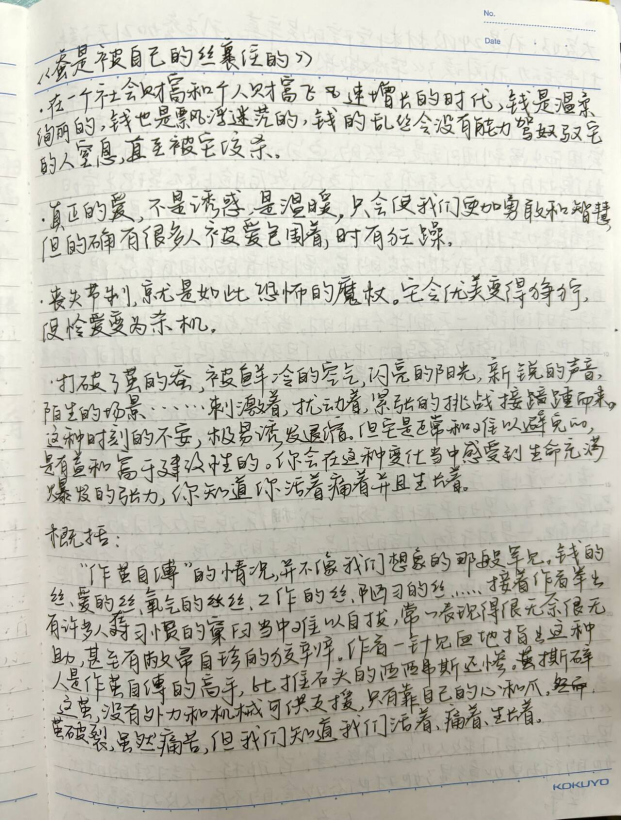 No.
Date
《蚕是被自己的丝裹住的》
·在一个社会财富和个人财富飞速增长的时代,钱是温柔
绚丽的,钱也是飘浮迷茫的,钱的乱丝令没有能力驾驭它
的人窒息,直至被它绞杀。
·真正的爱,不是诱惑,是温暖,只会使我们更加勇敢和智慧,
但的确有很多人被爱包围着,时有狂躁。
·丧失节制,就是如此恐怖的魔杖。它会优美变得狰狞,
使怜爱变为杀机。
·打破了茧的蚕,被鲜冷的空气,闪亮的阳光,新锐的声音,
陌生的场景······刺激着,扰动着,紧张的挑战接踵而来。
这种时刻的不安,极易诱发退缩。但它是正常和难以避免的,
是有益和富于建设性的。你会在这种变化当中感受到生命充满
爆发的张力,你知道你活着痛着并且生长着。
概括:
“作茧自缚”的情况,并不像我们想象的那般罕见。钱的
丝、爱的丝、氧气的丝、工作的丝、陋习的丝……接着作者举出
有许多人待习惯的窠臼当中难以自拔,常常表现得很无奈很无
助,甚至有敝帚自珍的狡辩。作者一针见血地指出这种
人是作茧自缚的高手,比推石头的西西弗斯还惨。要撕碎
这茧,没有外力和机械可供支援,只有靠自己的心和爪,然而,
茧破裂,虽然痛苦,但我们知道我们活着、痛着、生长着。
KOKUYO